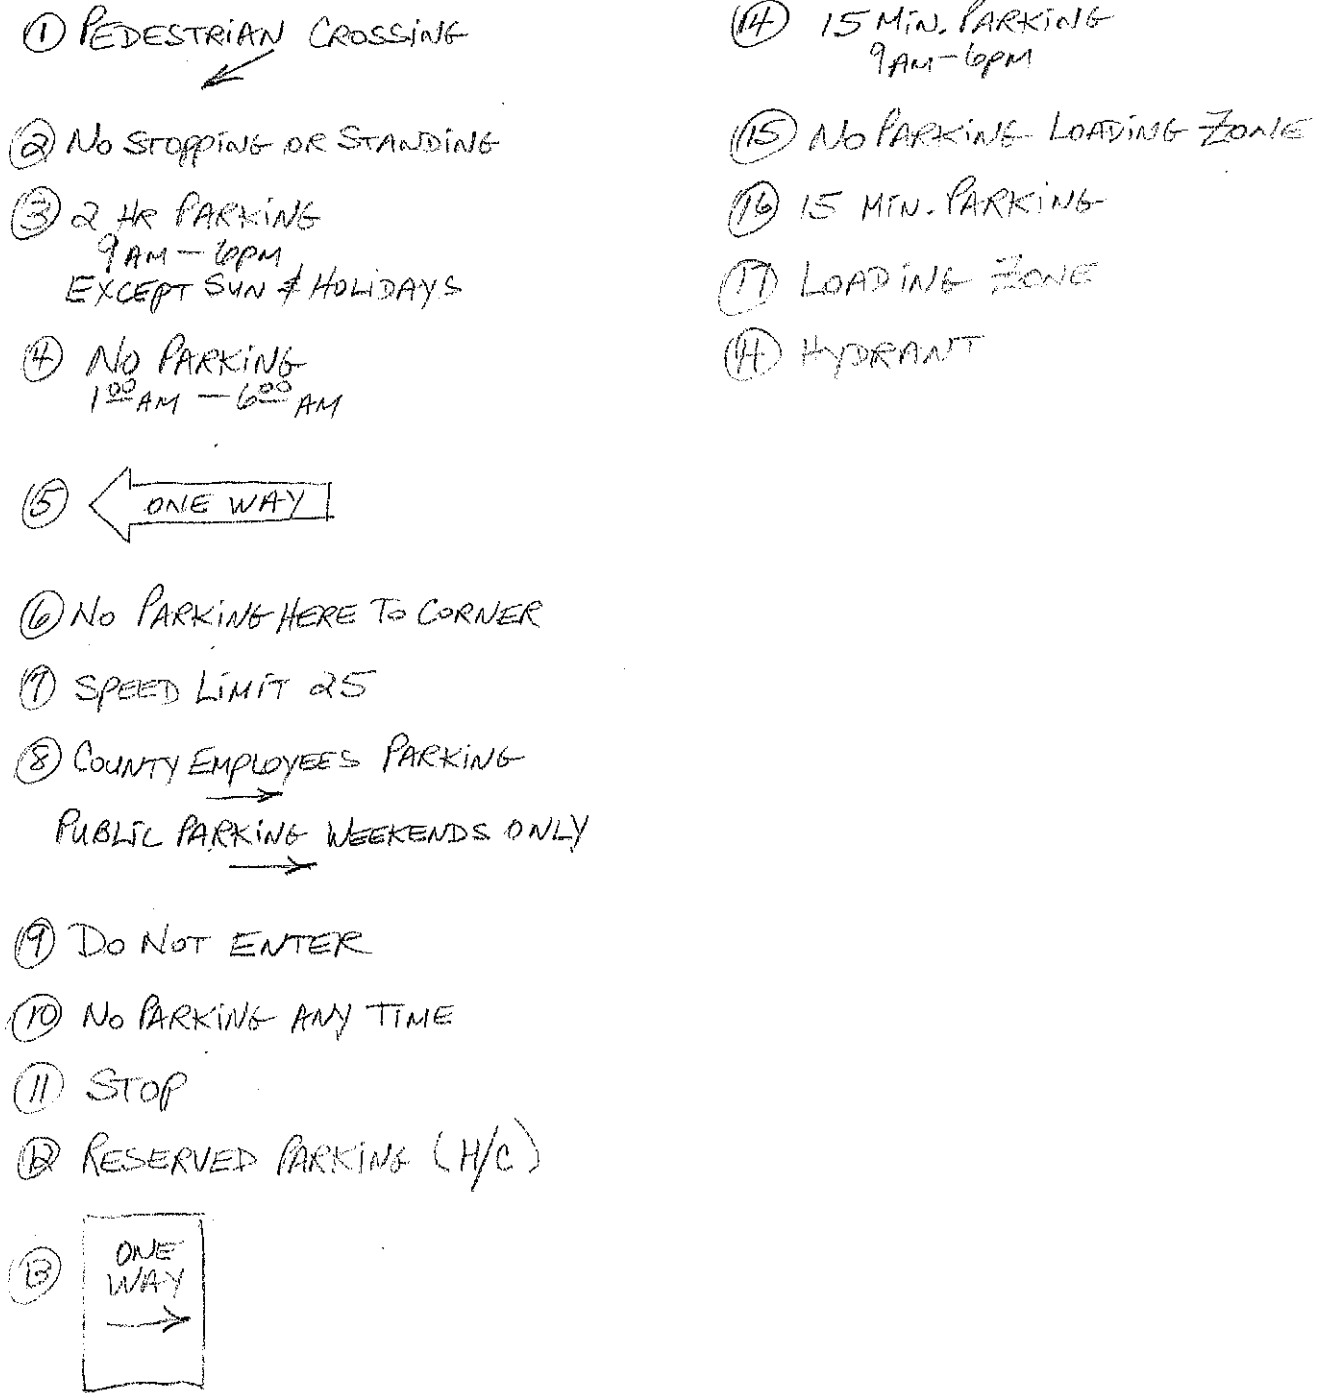 ① PEDESTRIAN CROSSING
② NO STOPPING OR STANDING
③ 2 HR PARKING
9AM - 6PM
EXCEPT SUN & HOLIDAYS
④ NO PARKING
1:00 AM - 6:00 AM
⑤ ONE WAY
⑥ NO PARKING HERE TO CORNER
⑦ SPEED LIMIT 25
⑧ COUNTY EMPLOYEES PARKING
PUBLIC PARKING WEEKENDS ONLY
⑨ DO NOT ENTER
⑩ NO PARKING ANY TIME
⑪ STOP
⑫ RESERVED PARKING (H/C)
⑬ ONE
WAY
⑭ 15 MIN. PARKING
9AM-6PM
⑮ NO PARKING LOADING ZONE
⑯ 15 MIN. PARKING
⑰ LOADING ZONE
Ⓗ HYDRANT